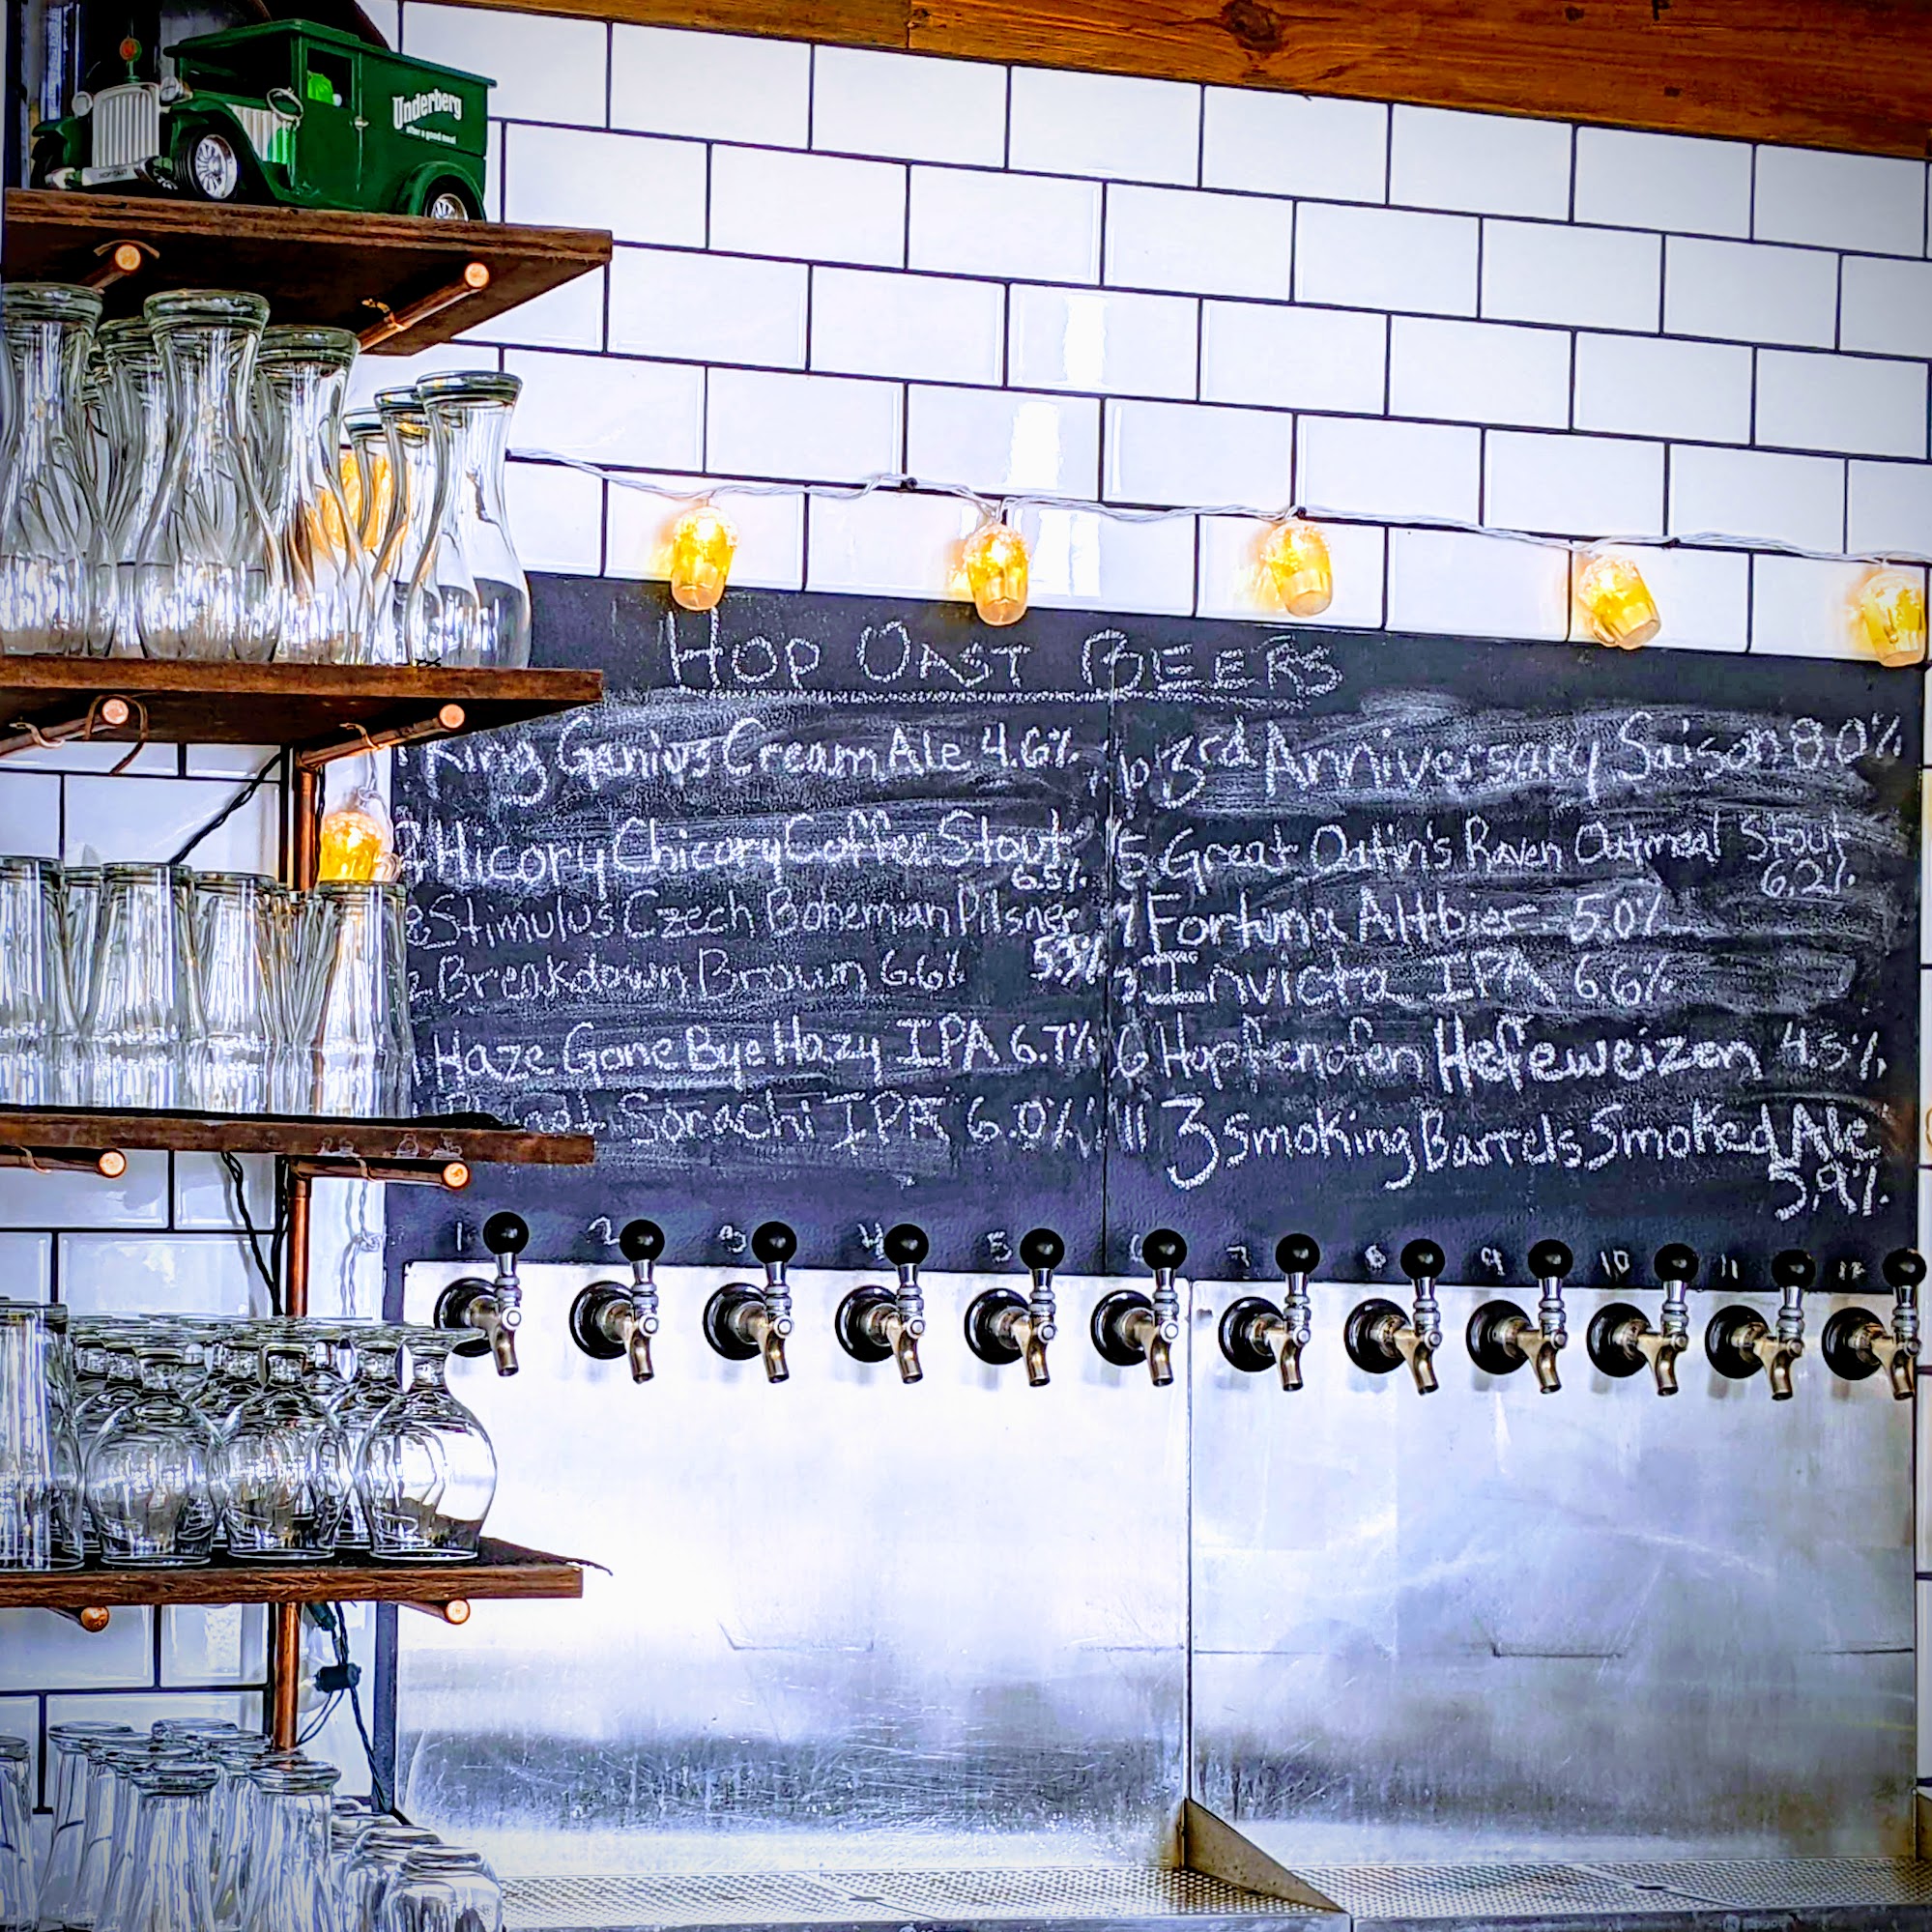 Underberg
after a good meal
HOP OAST
HOP OAST BEERS
King Genius Cream Ale 4.6%
Hicory Chicory Coffee Stout
6.5%
Stimulus Czech Bohemian Pilsner
Breakdown Brown 6.6%
Haze Gone Bye Hazy IPA 6.7%
Sorachi IPA 6.0%
10 3rd Anniversary Saison 8.0%
5 Great Oatin's Raven Oatmeal Stout
6.2%
7 Fortuna Altbier 5.0%
Invicta IPA 6.6%
6 Hopfenofen Hefeweizen 4.5%
11 3 Smoking Barrels Smoked Ale
5.9%
1 2 3 4 5 6 7 8 9 10 11 12